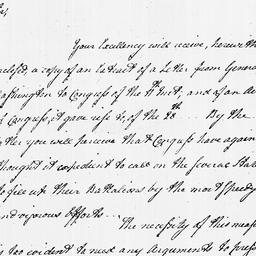 Your Excellency will receive, herewith
closed, a copy of an Extract of a Letter from General
ashington to Congress of the 11th Inst, and of an
of Congress, it gave rise to, of the 28th ... By the
ter you will perceive that Congress have again
thought it expedient to call on the several Stat
to fill up their Battalions by the most speedy
and vigorous Efforts ...
The necessity of this meas
is too evident to need any Arguments to press